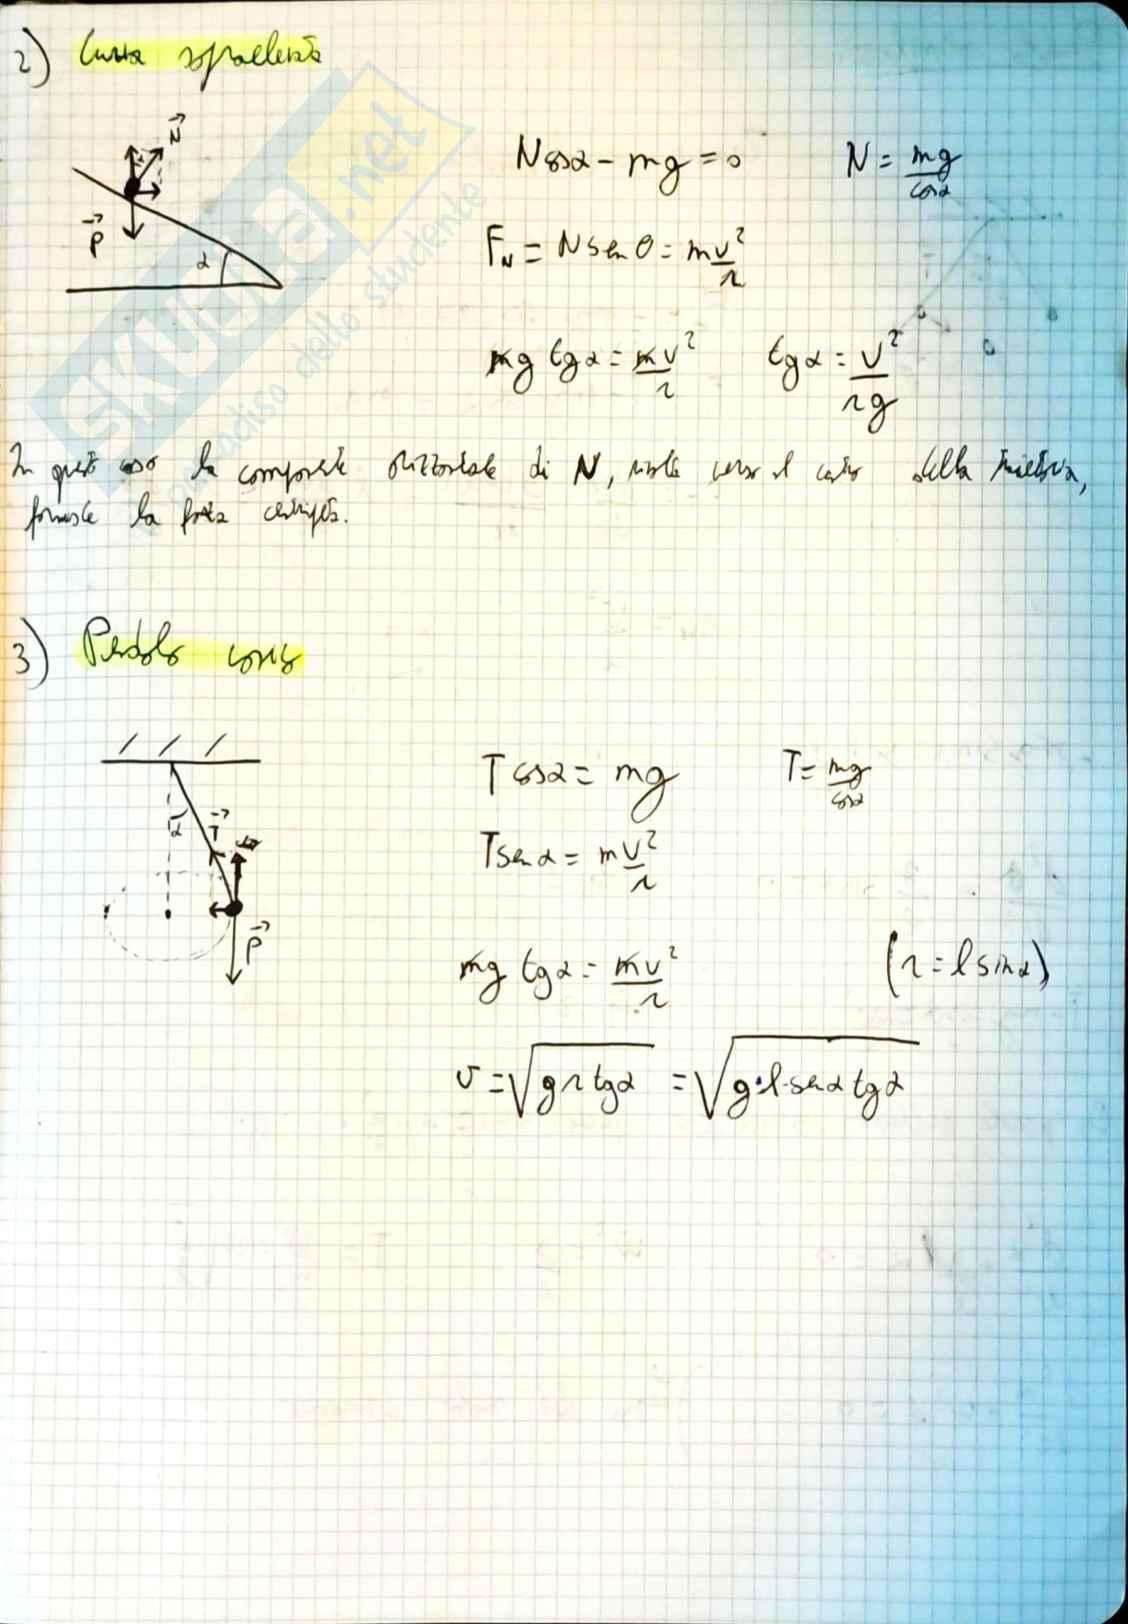 2) Curva sopraelevata
N cosα - mg = 0    N = mg/cosα
F_N = N sen θ = m v²/r
mg tgα = mv²/r    tgα = v²/rg
In questo caso la componente orizzontale di N, rivolta verso il centro della traiettoria,
fornisce la forza centripeta.
3) Pendolo conico
T cosα = mg    T = mg/cosα
T sen α = m v²/r
mg tgα = mv²/r    (r = l sinα)
v = √(g r tgα) = √(g·l·senα tgα)
N
P
α
α
T
P
SKUOLA.net
paradiso dello studente